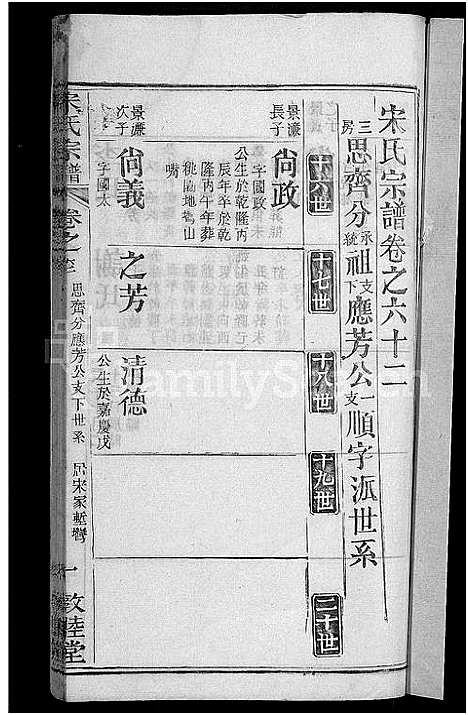 宋氏宗譜卷之六十二
三房思齊分承統祖支下應芳公一支順字派世系
十六世
十七世
十八世
十九世
二十世
景濂長子
尙政
字國政
公生於乾隆丙
辰年卒於乾
隆丙午年葬
桃園地鳥山
嘴
景濂次子
尙義
字國太
之芳
清德
公生於嘉慶戊
宋氏宗譜
卷之
思齊分應芳公支下世系
居宋家塹灣
一
敦睦堂
FamilySearch